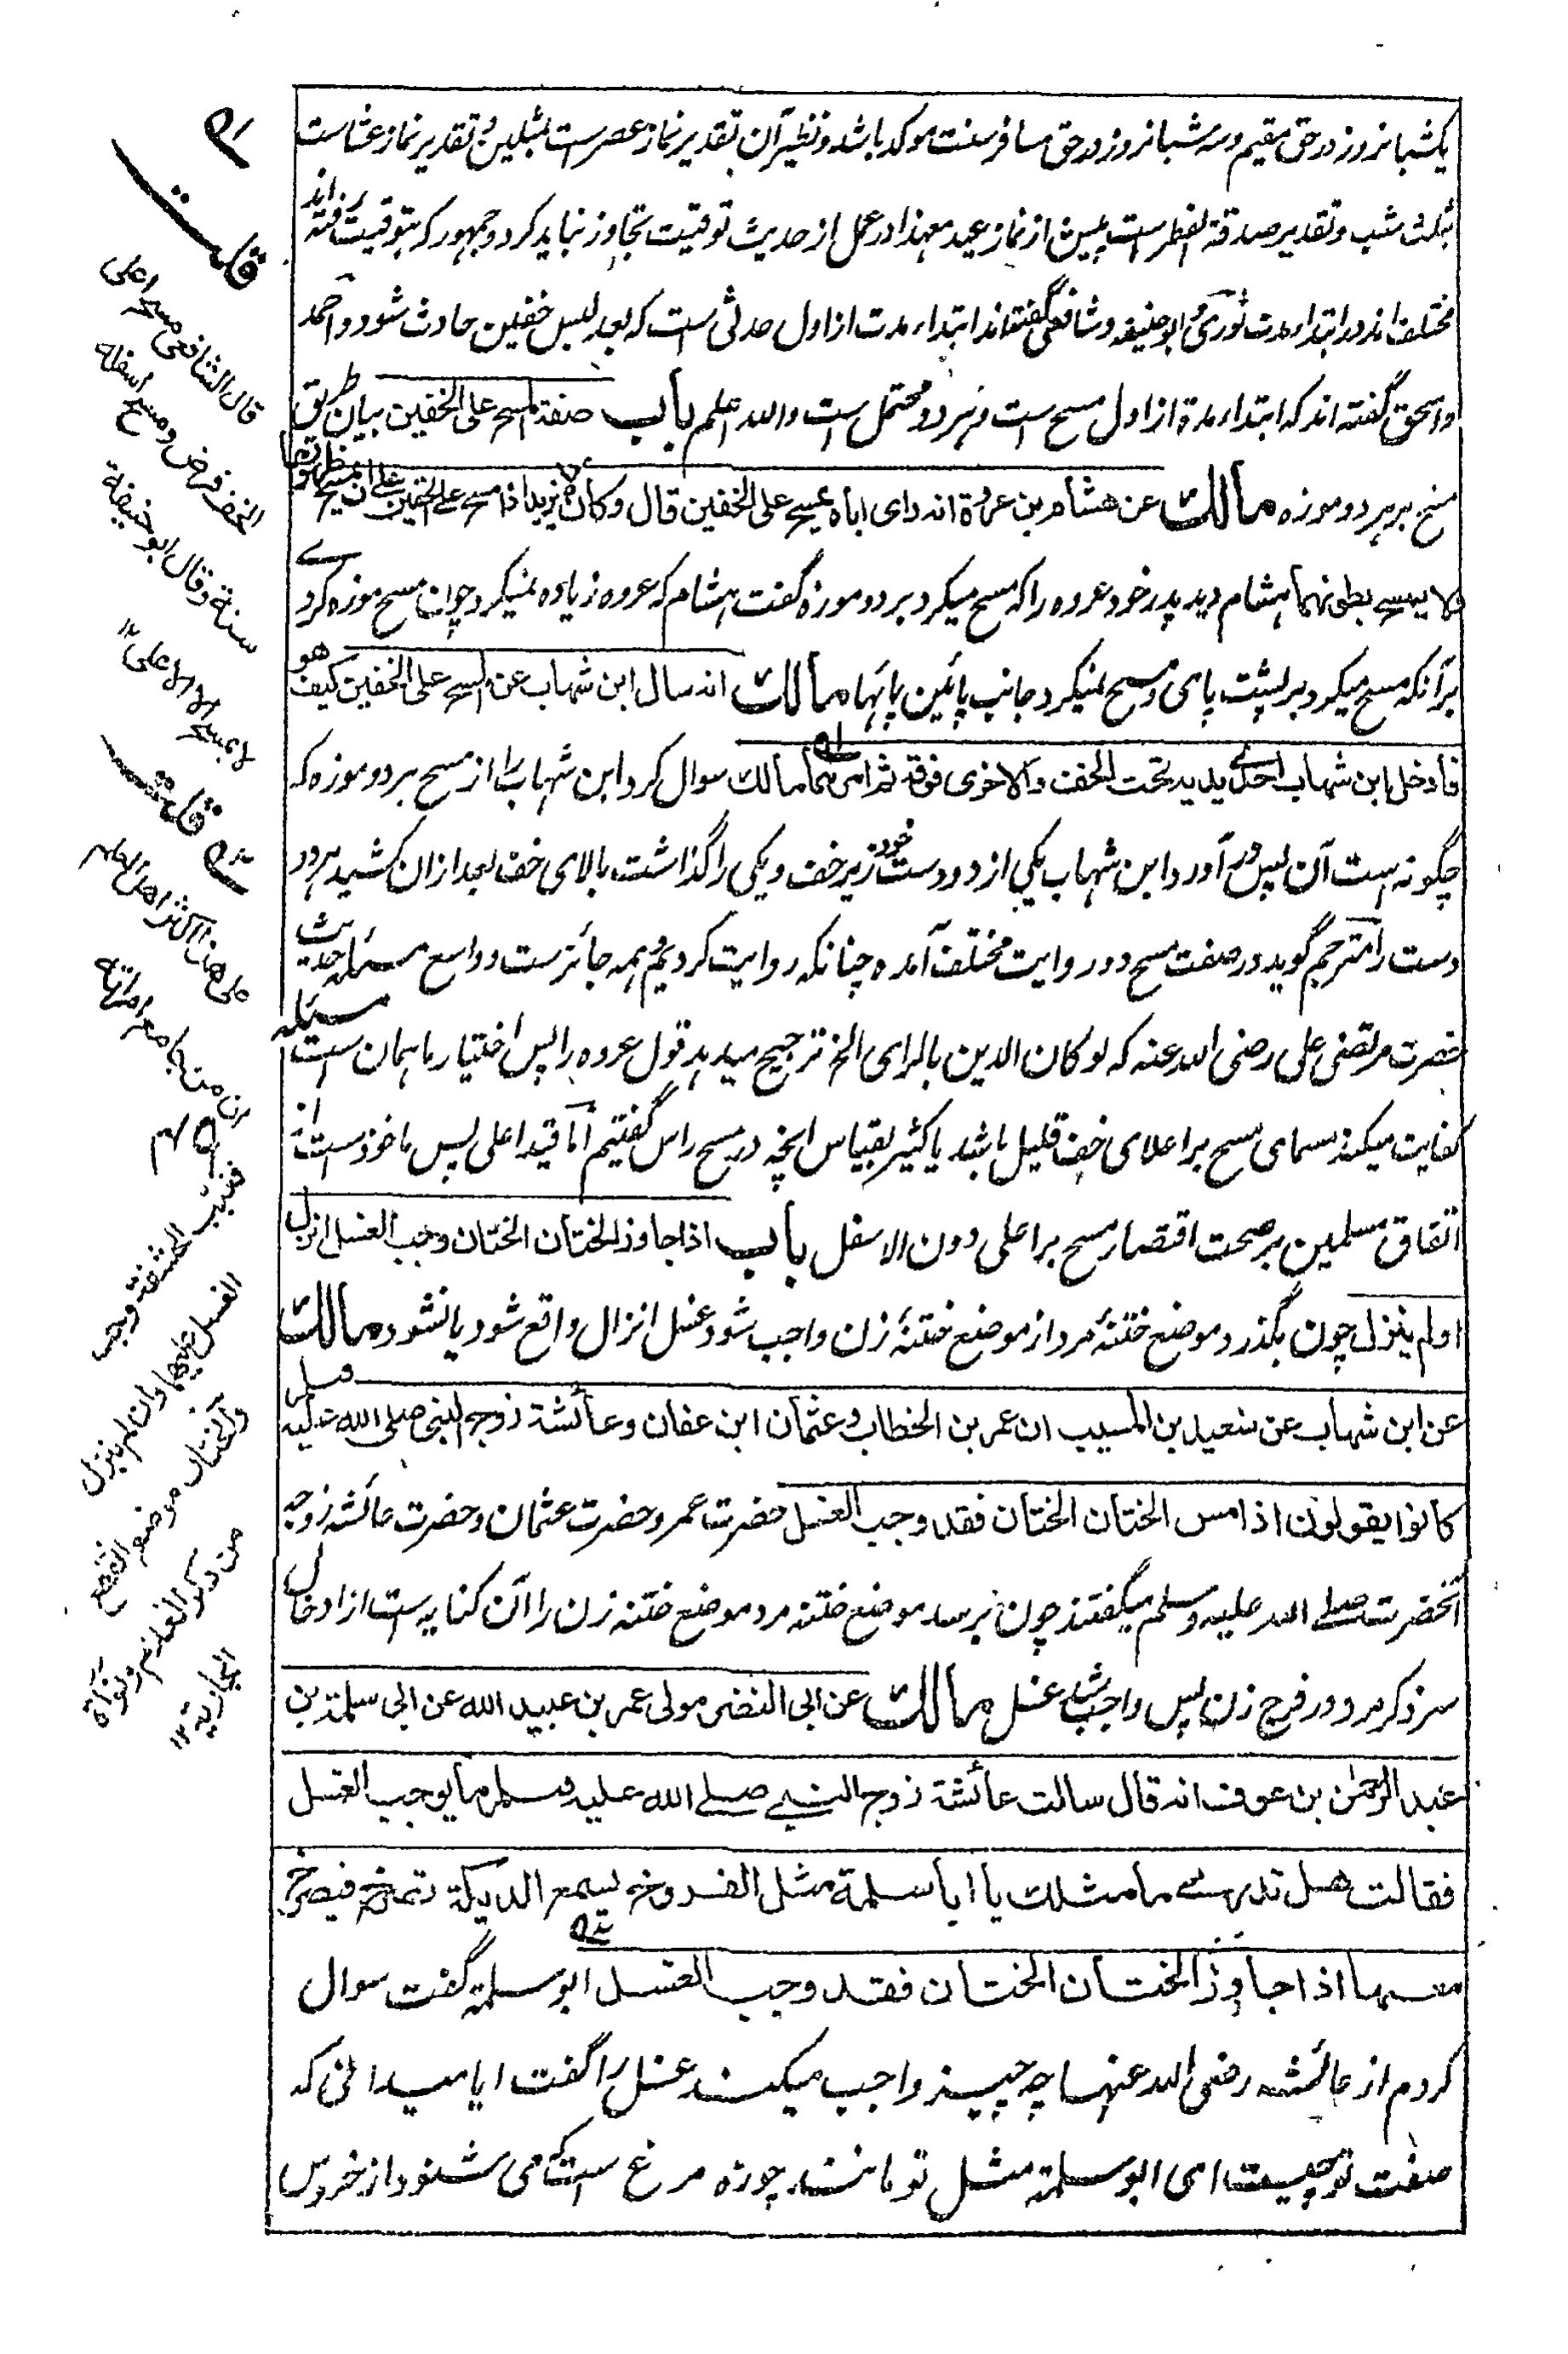 یکشبانروز در حق مقیم و سه شبانروز در حق مسافر سنت موکد باشد و نظیر آن تقدیر نماز عصر ست بمثلین و تقدیر نماز عشاست
بثلث شب و تقدیر صدقة الفطر ست پیش از نماز عید معهذا در عمل از حدیث توقیت تجاوز نباید کرد و جمهور که بتوقیت رفته اند
مختلف اند در ابتداء مدت ثوری و ابو حنیفه و شافعی گفته اند ابتداء مدت از اول حدثی ست که بعد لبس خفین حادث شود و احمد
و اسحق گفته اند که ابتداء مدة از اول مسح است و هر دو محتمل ست والله اعلم باب صفة المسح علی الخفین بیان طریق
مسح بر هر دو موزه مالك عن هشام بن عروة انه رای اباه یمسح علی الخفین قال وکان لا یزید اذا مسح علی الخفین علی ان یمسح ظهورهما
ولا یمسح بطونهما هشام دید پدر خود عروه را که مسح میکرد بر دو موزه گفت هشام که عروه زیاده نمیکرد چون مسح موزه کردے
بر آنکه مسح میکرد بر پشت پای و مسح نمیکرد جانب پائین پایها مالك انه سال ابن شهاب عن المسح علی الخفین کیف هو
فادخل ابن شهاب احدی یدیه تحت الخف والاخری فوقه ثم امرهما مالك سوال کرد ابن شهاب را از مسح بر دو موزه که
چگونه است آن پس در آورد ابن شهاب یکی از دو دست خود زیر خف و یکی را گذاشت بالای خف بعد ازان کشید هر دو
دست را مترجم گوید در صفت مسح دو روایت مختلف آمده چنانکه روایت کردیم و همه جائز ست و واسع مسئله حدیث
حضرت مرتضی علی رضی الله عنه که لو کان الدین بالرای الخ ترجیح میدهد قول عروه را پس اختیار ما همان ست مسئله
کفایت میکند مسمای مسح بر اعلای خف قلیل باشد یا کثیر بقیاس انچه در مسح راس گفتیم اما قید اعلی پس ماخوذ ست از
اتفاق مسلمین بر صحت اقتصار مسح بر اعلی دون الاسفل باب اذا جاوز الختان الختان وجب الغسل انزل
او لم ینزل چون بگذرد موضع ختنهٔ مرد از موضع ختنهٔ زن واجب شود غسل انزال واقع شود یا نشود مالك
عن ابن شهاب عن سعید بن المسیب ان عمر بن الخطاب وعثمان ابن عفان وعائشة زوج النبی صلی الله علیه وسلم
کانوا یقولون اذا مس الختان الختان فقد وجب الغسل حضرت عمر و حضرت عثمان و حضرت عائشه زوجه
آنحضرت صلے الله علیه وسلم میگفتند چون برسد موضع ختنه مرد موضع ختنه زن را آن کنایه ست از ادخال
سر ذکر مرد در فرج زن پس واجب شد غسل مالك عن ابی النضر مولی عمر بن عبید الله عن ابی سلمة بن
عبد الرحمٰن بن عوف انه قال سالت عائشة زوج النبے صلے الله علیه وسلم ما یوجب الغسل
فقالت هل تدرے ما مثلك یا ابا سلمة مثل الفروخ یسمع الدیکة تصرخ فیصرخ
معها اذا جاوز الختان الختان فقد وجب الغسل ابو سلمة گفت سوال
کردم از عائشه رضی الله عنها چه چیز واجب میکند غسل را گفت ایا میدانی که
صفت تو چیست ای ابو سلمة مثل تو مانند چوزه مرغ ست که می شنود از خروس
قلت
قال الشافعی مسح اعلی
الخف فرض ومسح اسفله
سنة وقال ابو حنیفة
لا یمسح الا الاعلی ۱۲
قلت
علی هذا اکثر اهل العلم
ان من جامع امراته
فغیب الحشفة وجب
الغسل علیهما وان لم ینزل
والختان موضع القطع
من ذکر الغلام ونواة
الجاریة ۱۲